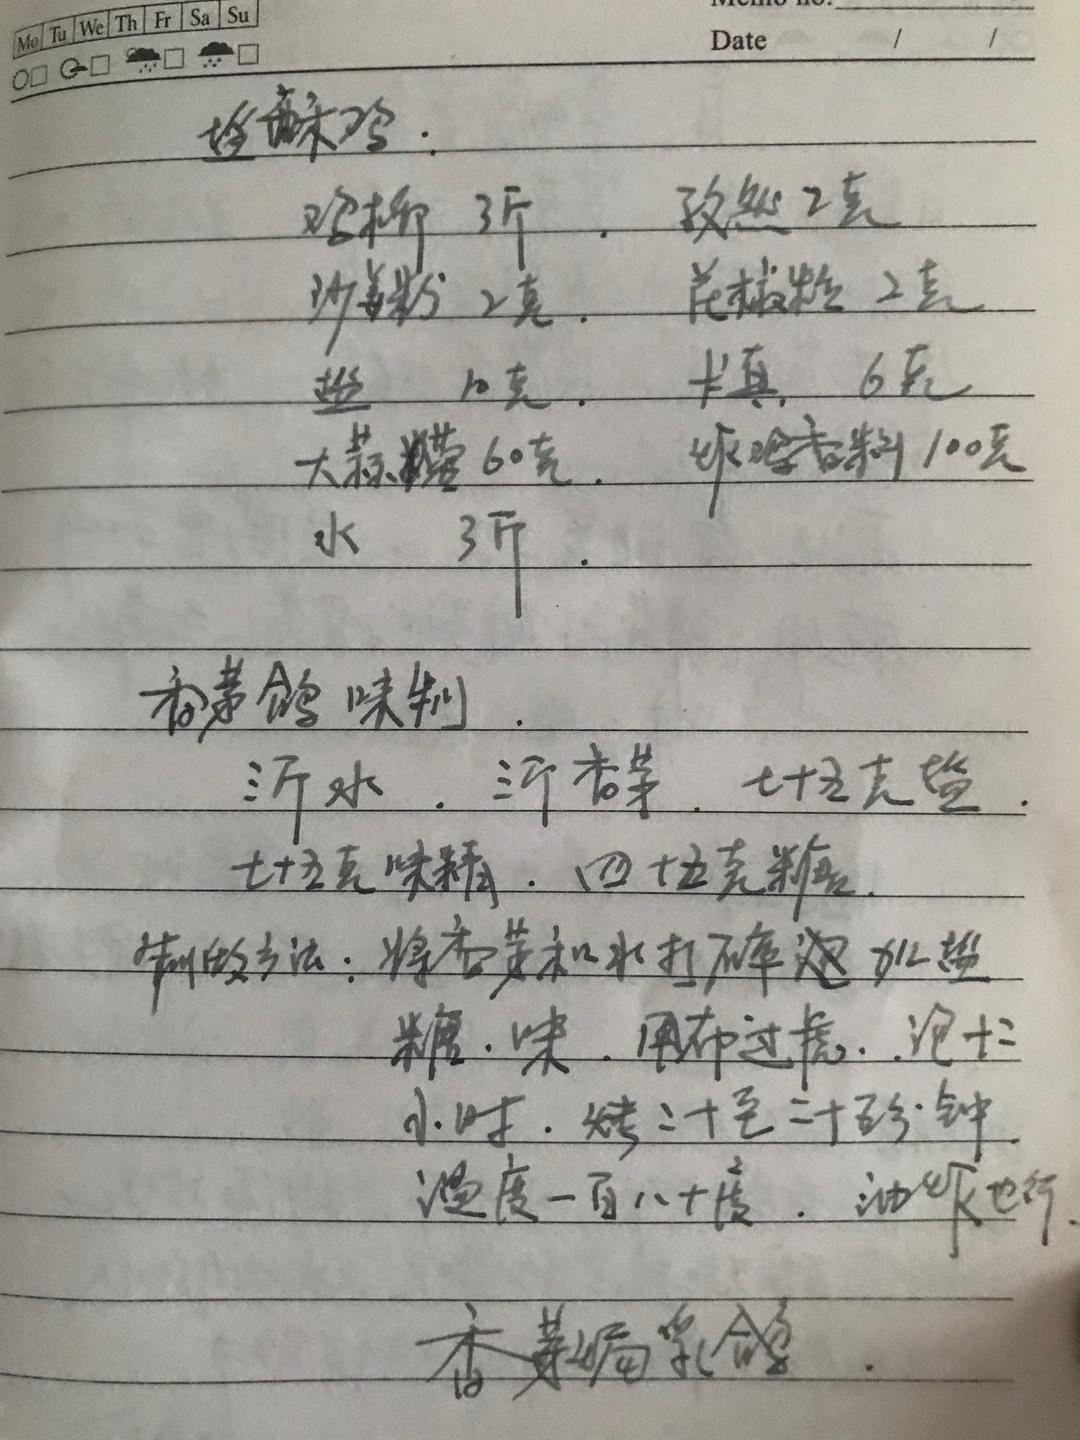 Mo Tu We Th Fr Sa Su
Memo no.
Date / /
盐酥鸡.
鸡柳 3斤. 孜然2克
沙姜粉 2克. 花椒粉 2克
盐 10克. 卡真. 6克
大蒜 60克. 炸鸡香料100克
水 3斤.
香茅鸽味料.
三斤水. 三斤香茅. 七十五克盐.
七十五克味精. 四十五克糖.
制做方法: 将香茅和水打碎 加盐
糖.味. 用布过虑. 泡十二
小时. 烤二十至二十五分钟.
温度一百八十度. 油炸也行.
香茅焗乳鸽.